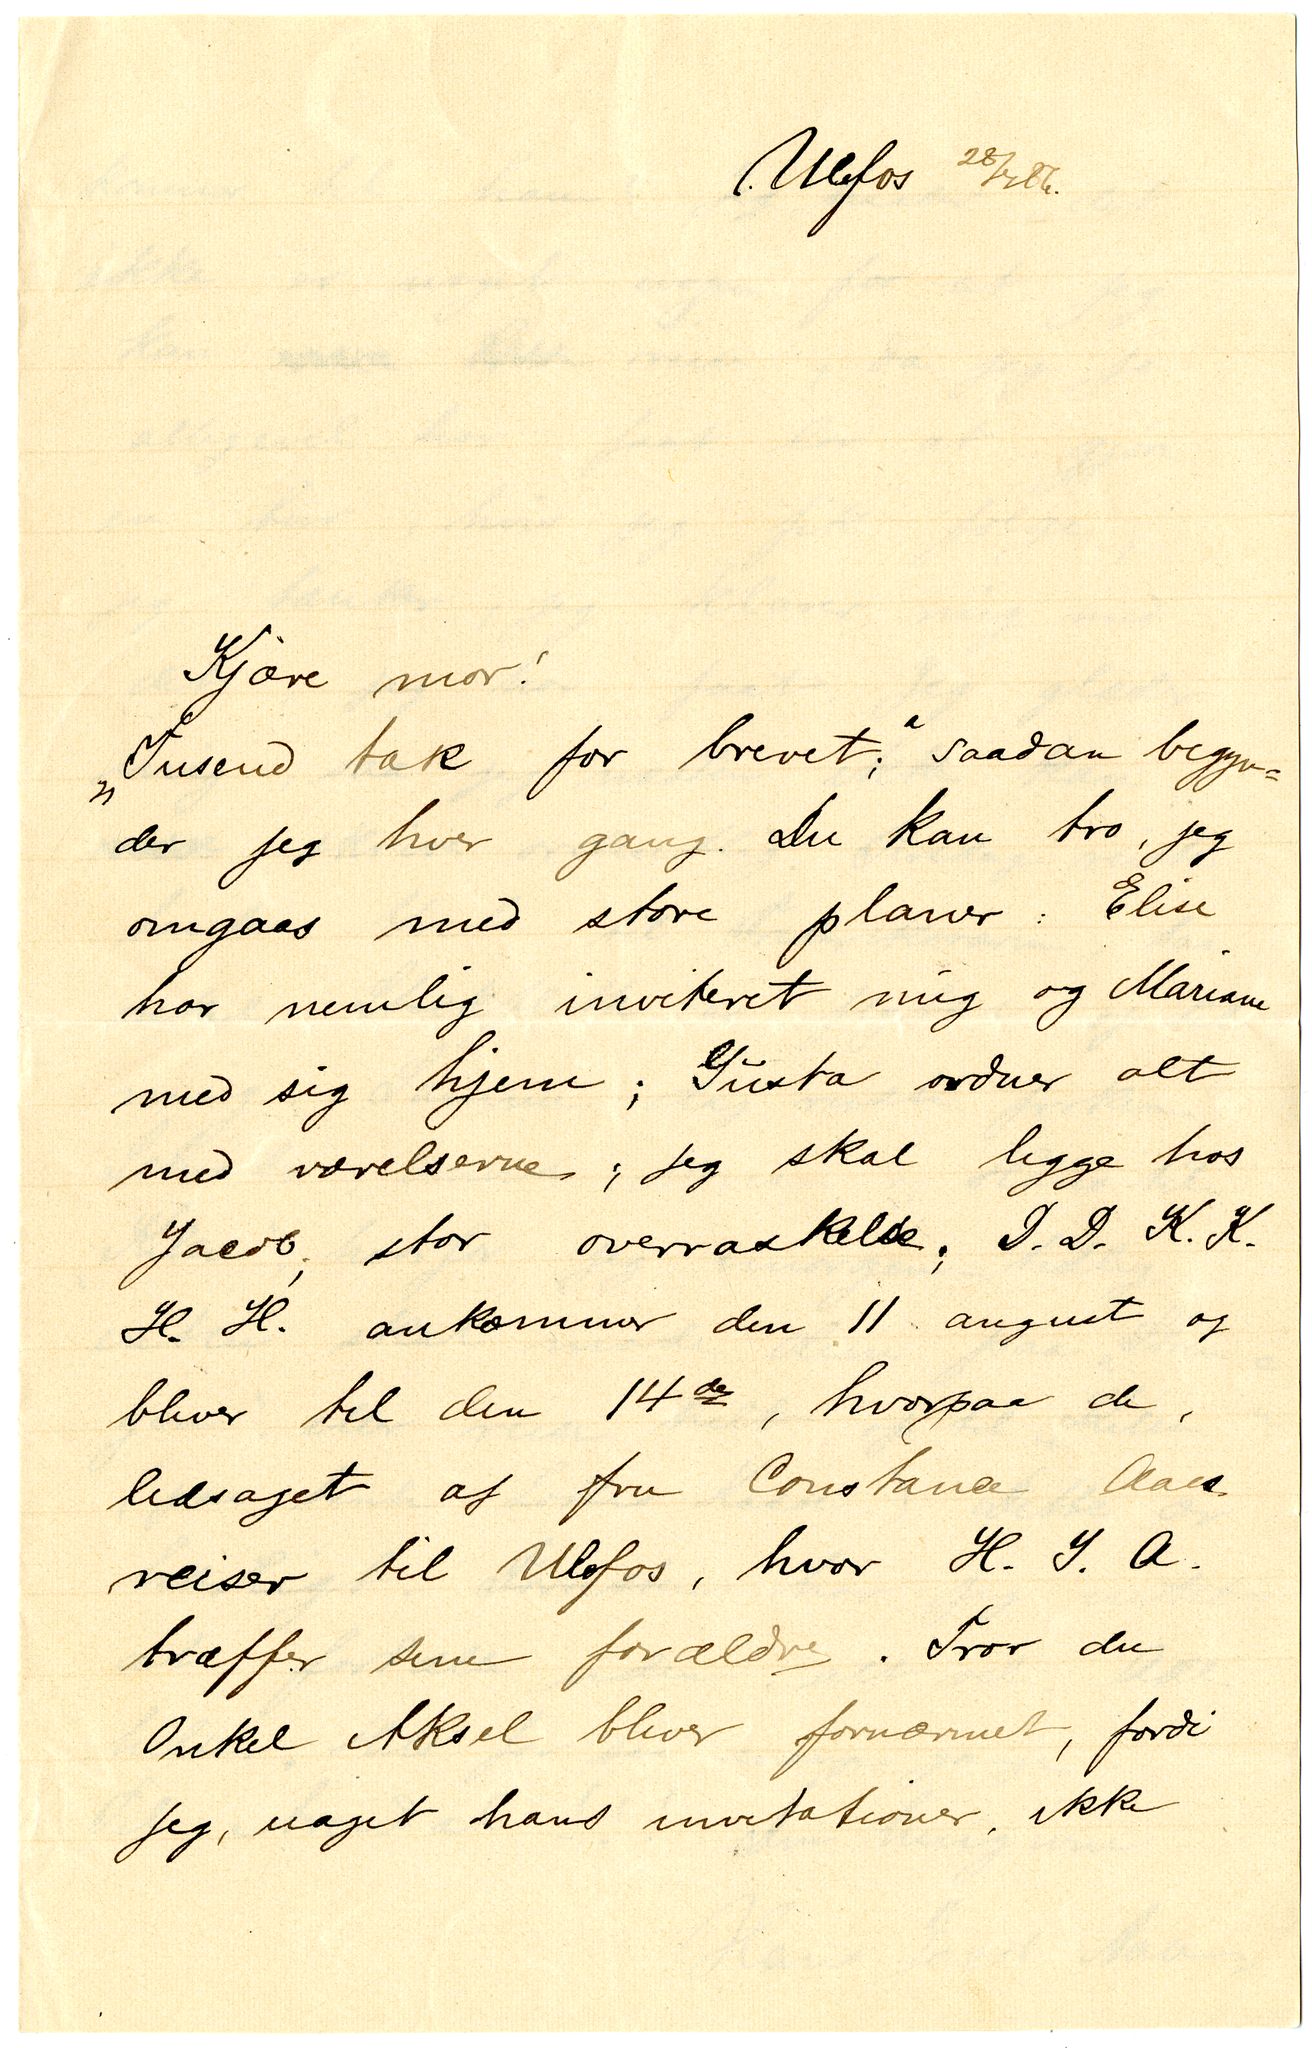 Ulefos 28/7 86.
Kjære mor!
„Tusend tak for brevet;“ saadan begyn=
der jeg hver gang. Du kan tro, jeg
omgaas med store planer: Elise
har nemlig inviteret mig og Mariane
med sig hjem; Gusta ordner alt
med værelserne; jeg skal ligge hos
Jacob; stor overraskelse; D. D. K. K.
H. H. ankommer den 11 august og
bliver til den 14de, hvorpaa de,
ledsaget af fru Constance Aars
reiser til Ulefos, hvor H. J. A.
træffer sine forældre. Tror du
Onkel Aksel bliver fornærmet, fordi
jeg, uagtet hans invitationer, ikke